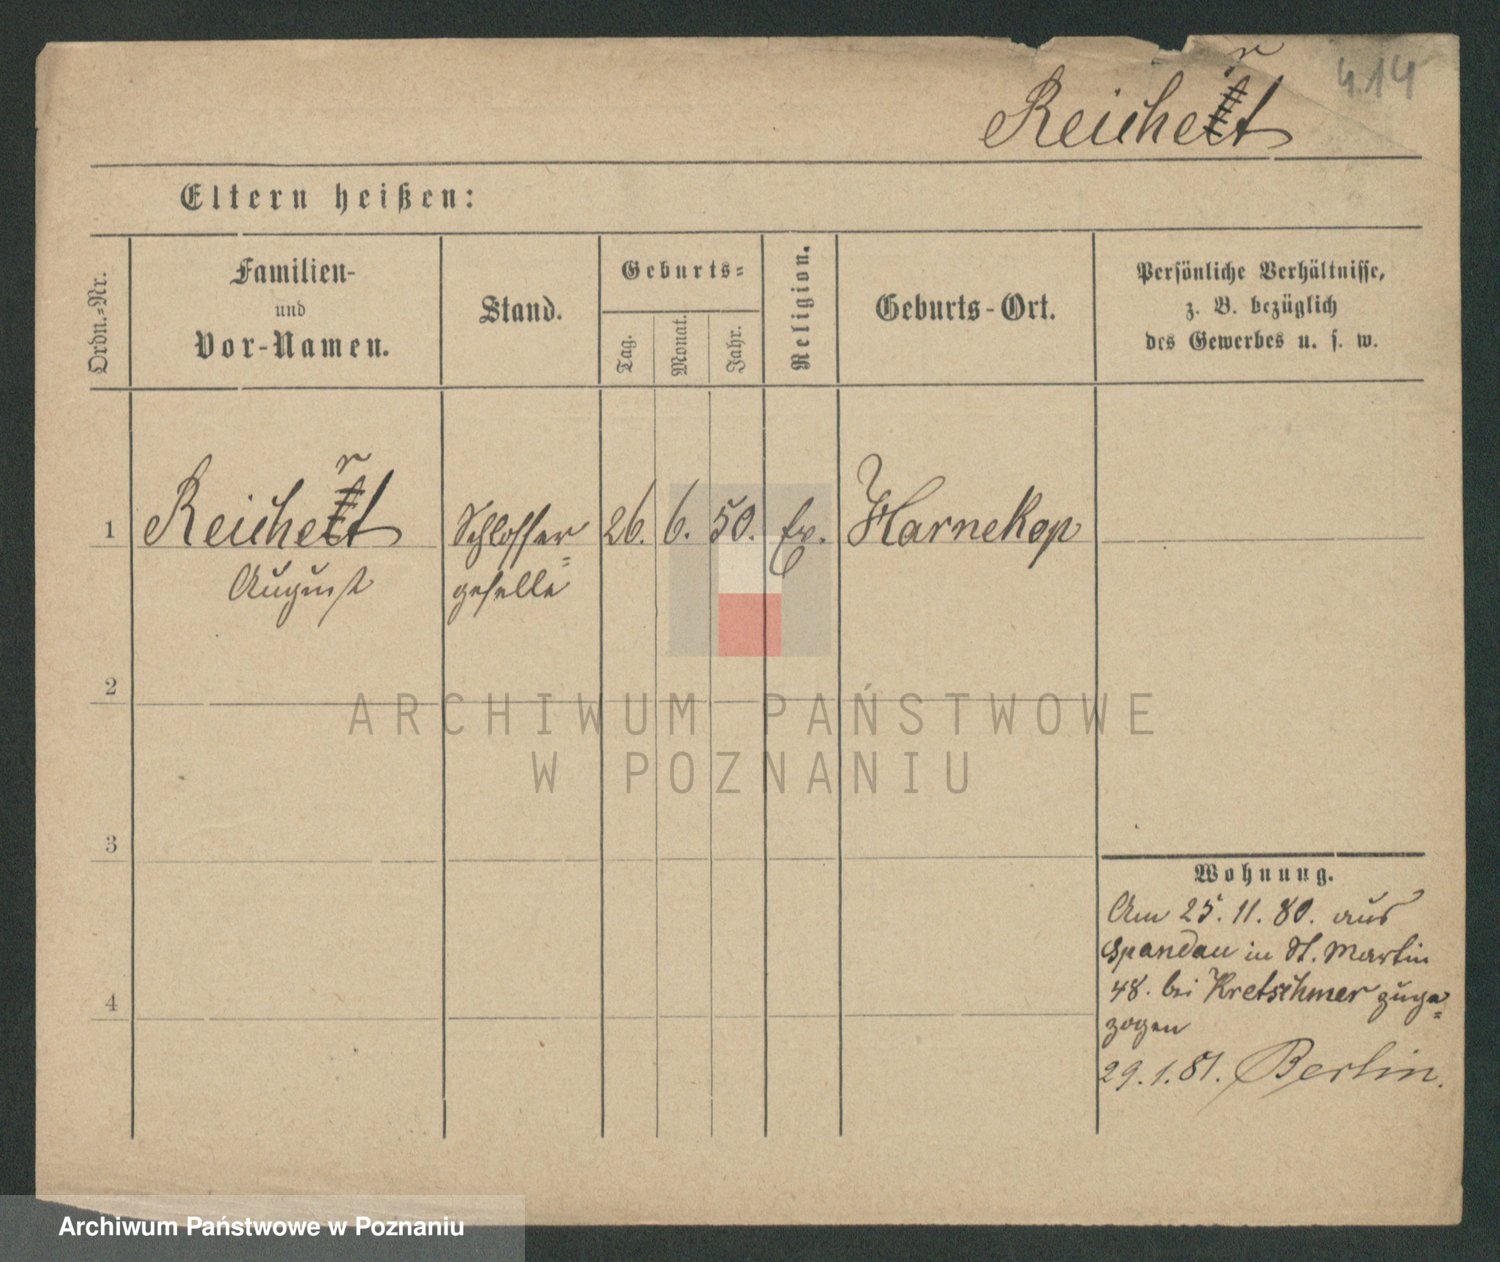 414
Reichert
Eltern heißen:
Ordn.-Nr.
Familien-
und
Vor-Namen.
Stand.
Geburts-
Tag.
Monat.
Jahr.
Religion.
Geburts-Ort.
Persönliche Verhältnisse,
z. B. bezüglich
des Gewerbes u. s. w.
1 Reichert Schlosser- 26. 6. 50. Ev. Harnekop
August geselle
2
3
4
Wohnung.
Am 25. 11. 80. aus
Spandau in St. Martin
48. bei Kretschmer zuge-
zogen
29. 1. 81. Berlin.
ARCHIWUM PAŃSTWOWE
W POZNANIU
Archiwum Państwowe w Poznaniu